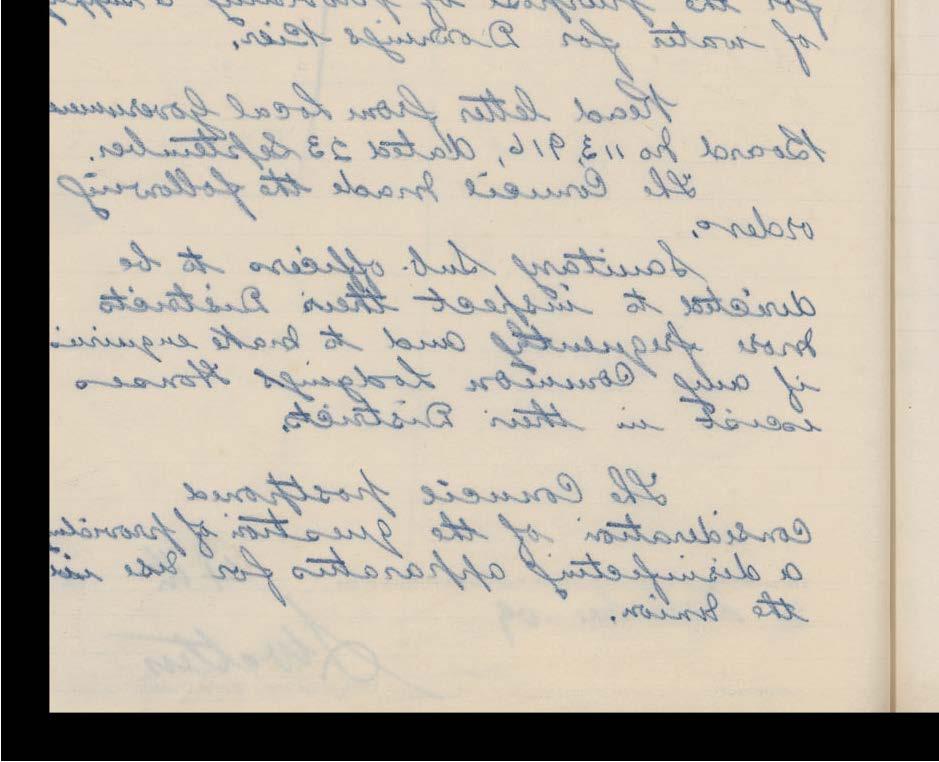 for the purpose of providing a supply
of water for Downings Pier.
Read letter from Local Governme
Board No 113,916, dated 23 September.
The Council made the following
orders.
Sanitary Sub. officers to be
directed to inspect their Districts
more frequently and to make enquiries
if any Common Lodgings Houses
exist in their Districts.
The Council postponed
Consideration of the question of providing
a disinfecting apparatus for use in
the Union.